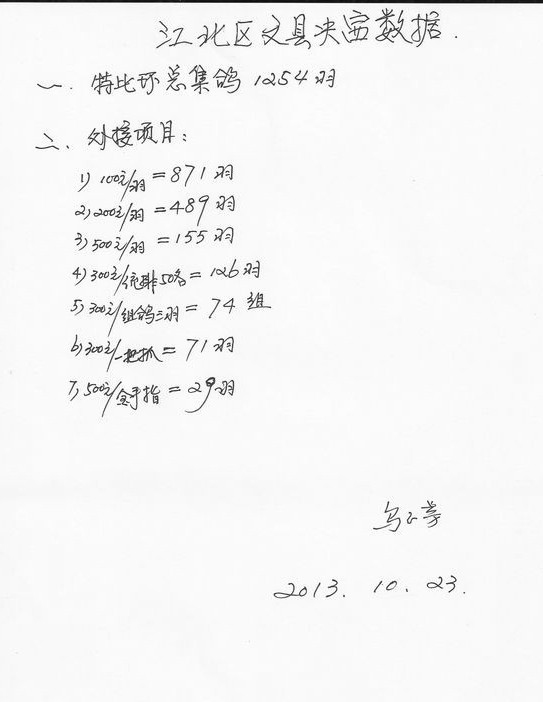 江北区文县决赛数据.
一. 特比环总集鸽 1254羽
二、外接项目:
1) 100元/羽 = 871羽
2) 200元/羽 = 489羽
3) 500元/羽 = 155羽
4) 300元/依排50名 = 126羽
5) 300元/组鸽三羽 = 74 组
6) 300元/一把抓 = 71羽
7) 500元/金手指 = 29羽
2013. 10. 23.